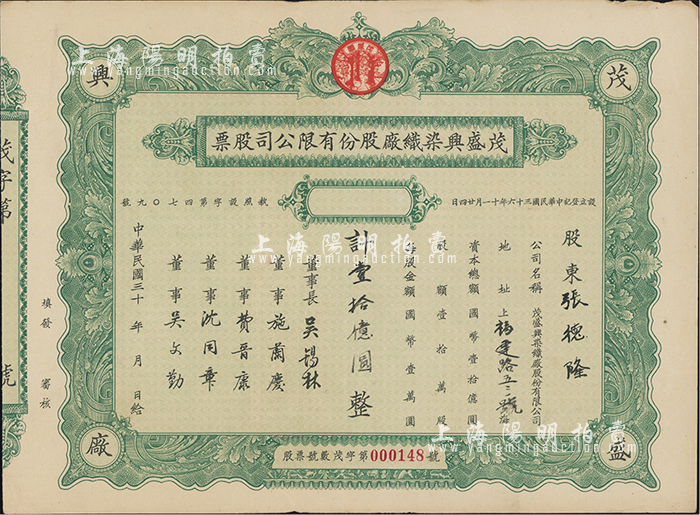 上海陽明拍賣
www.yangmingauction.com
茂
盛
興
廠
茂盛興染織廠股份有限公司股票
設立登記中華民國三十六年十一月廿四日
執照設字第四七〇九號
股東張槐隆
公司名稱 茂盛興染織廠股份有限公司
地址 上海
資本總額 國幣壹拾億圓
股額壹拾萬股
每股金額 國幣壹萬圓
計壹拾億圓整
董事長 吳錫林
董事 施蘭慶
董事 費晉康
董事 沈同章
董事 吳文勤
中華民國三十 年 月 日給
股票號數茂字第000148號
茂字第
號
填發
審核
上海陽明拍賣
www.yangmingauction.com
上海陽明拍賣
www.yangmingauction.com